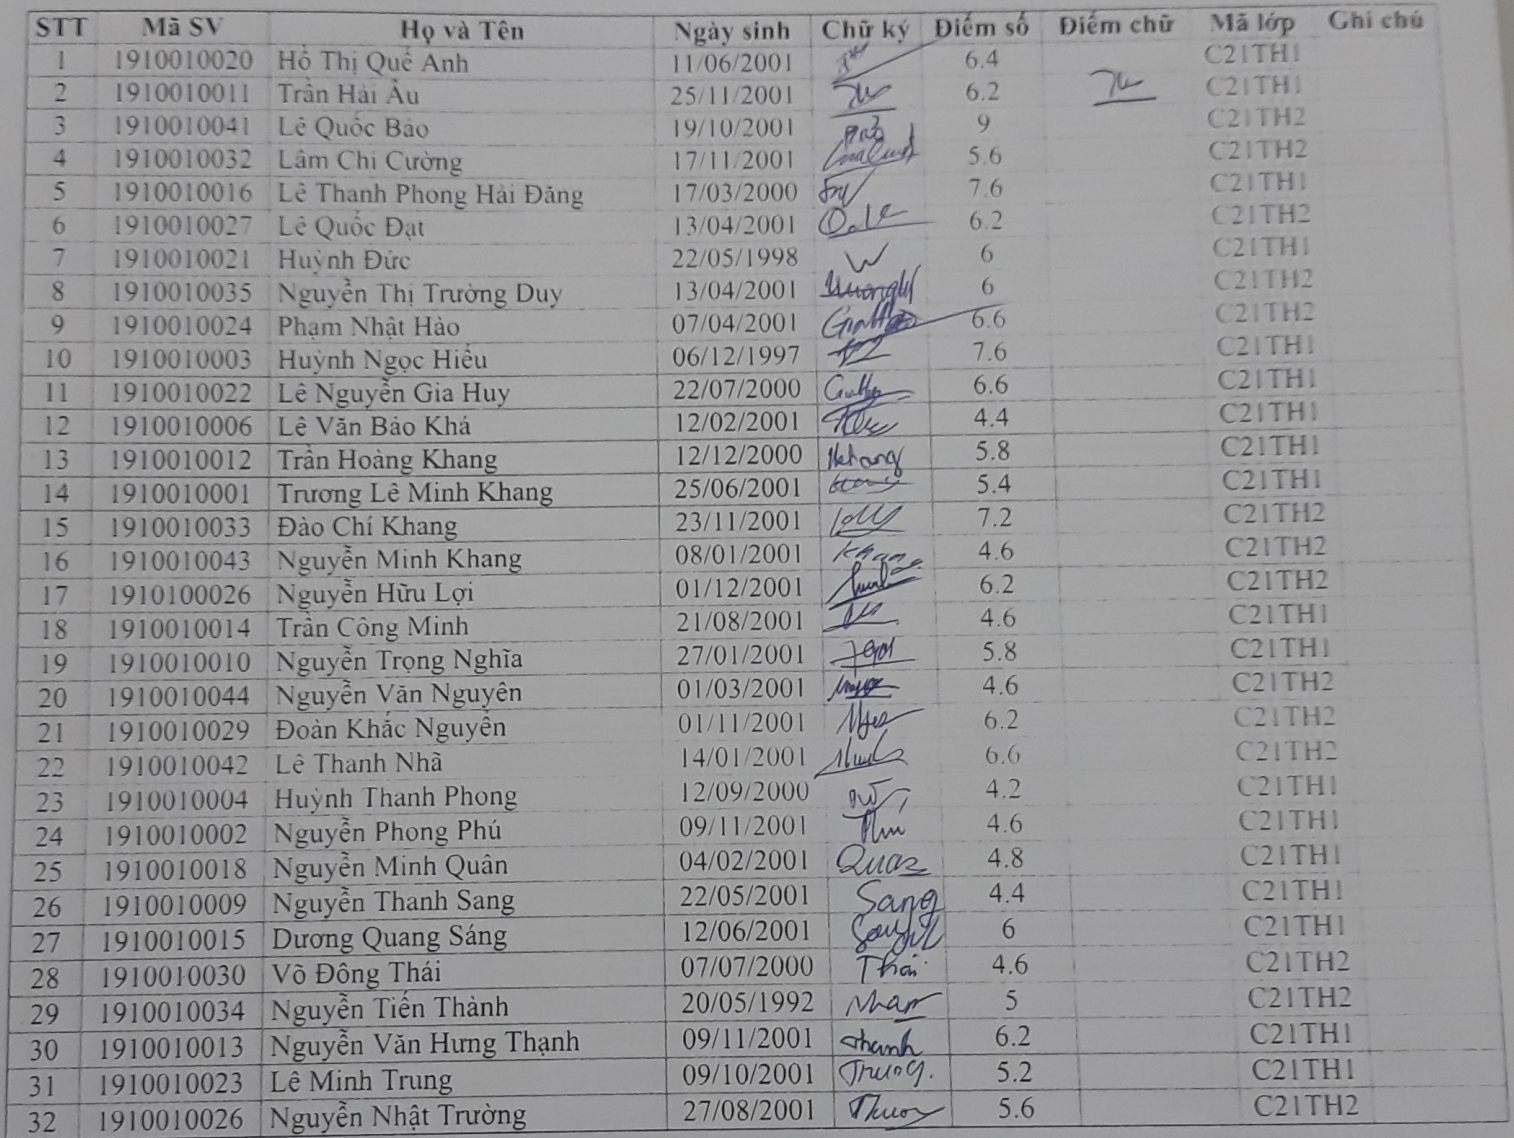 STT Mã SV Họ và Tên Ngày sinh Chữ ký Điểm số Điểm chữ Mã lớp Ghi chú
1 1910010020 Hồ Thị Quế Anh 11/06/2001 6.4 C21TH1
2 1910010011 Trần Hải Âu 25/11/2001 6.2 C21TH1
3 1910010041 Lê Quốc Bảo 19/10/2001 9 C21TH2
4 1910010032 Lâm Chí Cường 17/11/2001 5.6 C21TH2
5 1910010016 Lê Thanh Phong Hải Đăng 17/03/2000 7.6 C21TH1
6 1910010027 Lê Quốc Đạt 13/04/2001 6.2 C21TH2
7 1910010021 Huỳnh Đức 22/05/1998 6 C21TH1
8 1910010035 Nguyễn Thị Trường Duy 13/04/2001 6 C21TH2
9 1910010024 Phạm Nhật Hào 07/04/2001 6.6 C21TH2
10 1910010003 Huỳnh Ngọc Hiếu 06/12/1997 7.6 C21TH1
11 1910010022 Lê Nguyễn Gia Huy 22/07/2000 6.6 C21TH1
12 1910010006 Lê Văn Bảo Khá 12/02/2001 4.4 C21TH1
13 1910010012 Trần Hoàng Khang 12/12/2000 Khang 5.8 C21TH1
14 1910010001 Trương Lê Minh Khang 25/06/2001 5.4 C21TH1
15 1910010033 Đào Chí Khang 23/11/2001 7.2 C21TH2
16 1910010043 Nguyễn Minh Khang 08/01/2001 Khang 4.6 C21TH2
17 1910100026 Nguyễn Hữu Lợi 01/12/2001 6.2 C21TH2
18 1910010014 Trần Công Minh 21/08/2001 4.6 C21TH1
19 1910010010 Nguyễn Trọng Nghĩa 27/01/2001 5.8 C21TH1
20 1910010044 Nguyễn Văn Nguyên 01/03/2001 4.6 C21TH2
21 1910010029 Đoàn Khắc Nguyễn 01/11/2001 6.2 C21TH2
22 1910010042 Lê Thanh Nhã 14/01/2001 6.6 C21TH2
23 1910010004 Huỳnh Thanh Phong 12/09/2000 4.2 C21TH1
24 1910010002 Nguyễn Phong Phú 09/11/2001 Phú 4.6 C21TH1
25 1910010018 Nguyễn Minh Quân 04/02/2001 4.8 C21TH1
26 1910010009 Nguyễn Thanh Sang 22/05/2001 Sang 4.4 C21TH1
27 1910010015 Dương Quang Sáng 12/06/2001 6 C21TH1
28 1910010030 Võ Đông Thái 07/07/2000 Thái 4.6 C21TH2
29 1910010034 Nguyễn Tiến Thành 20/05/1992 5 C21TH2
30 1910010013 Nguyễn Văn Hưng Thạnh 09/11/2001 thanh 6.2 C21TH1
31 1910010023 Lê Minh Trung 09/10/2001 Trung. 5.2 C21TH1
32 1910010026 Nguyễn Nhật Trường 27/08/2001 5.6 C21TH2